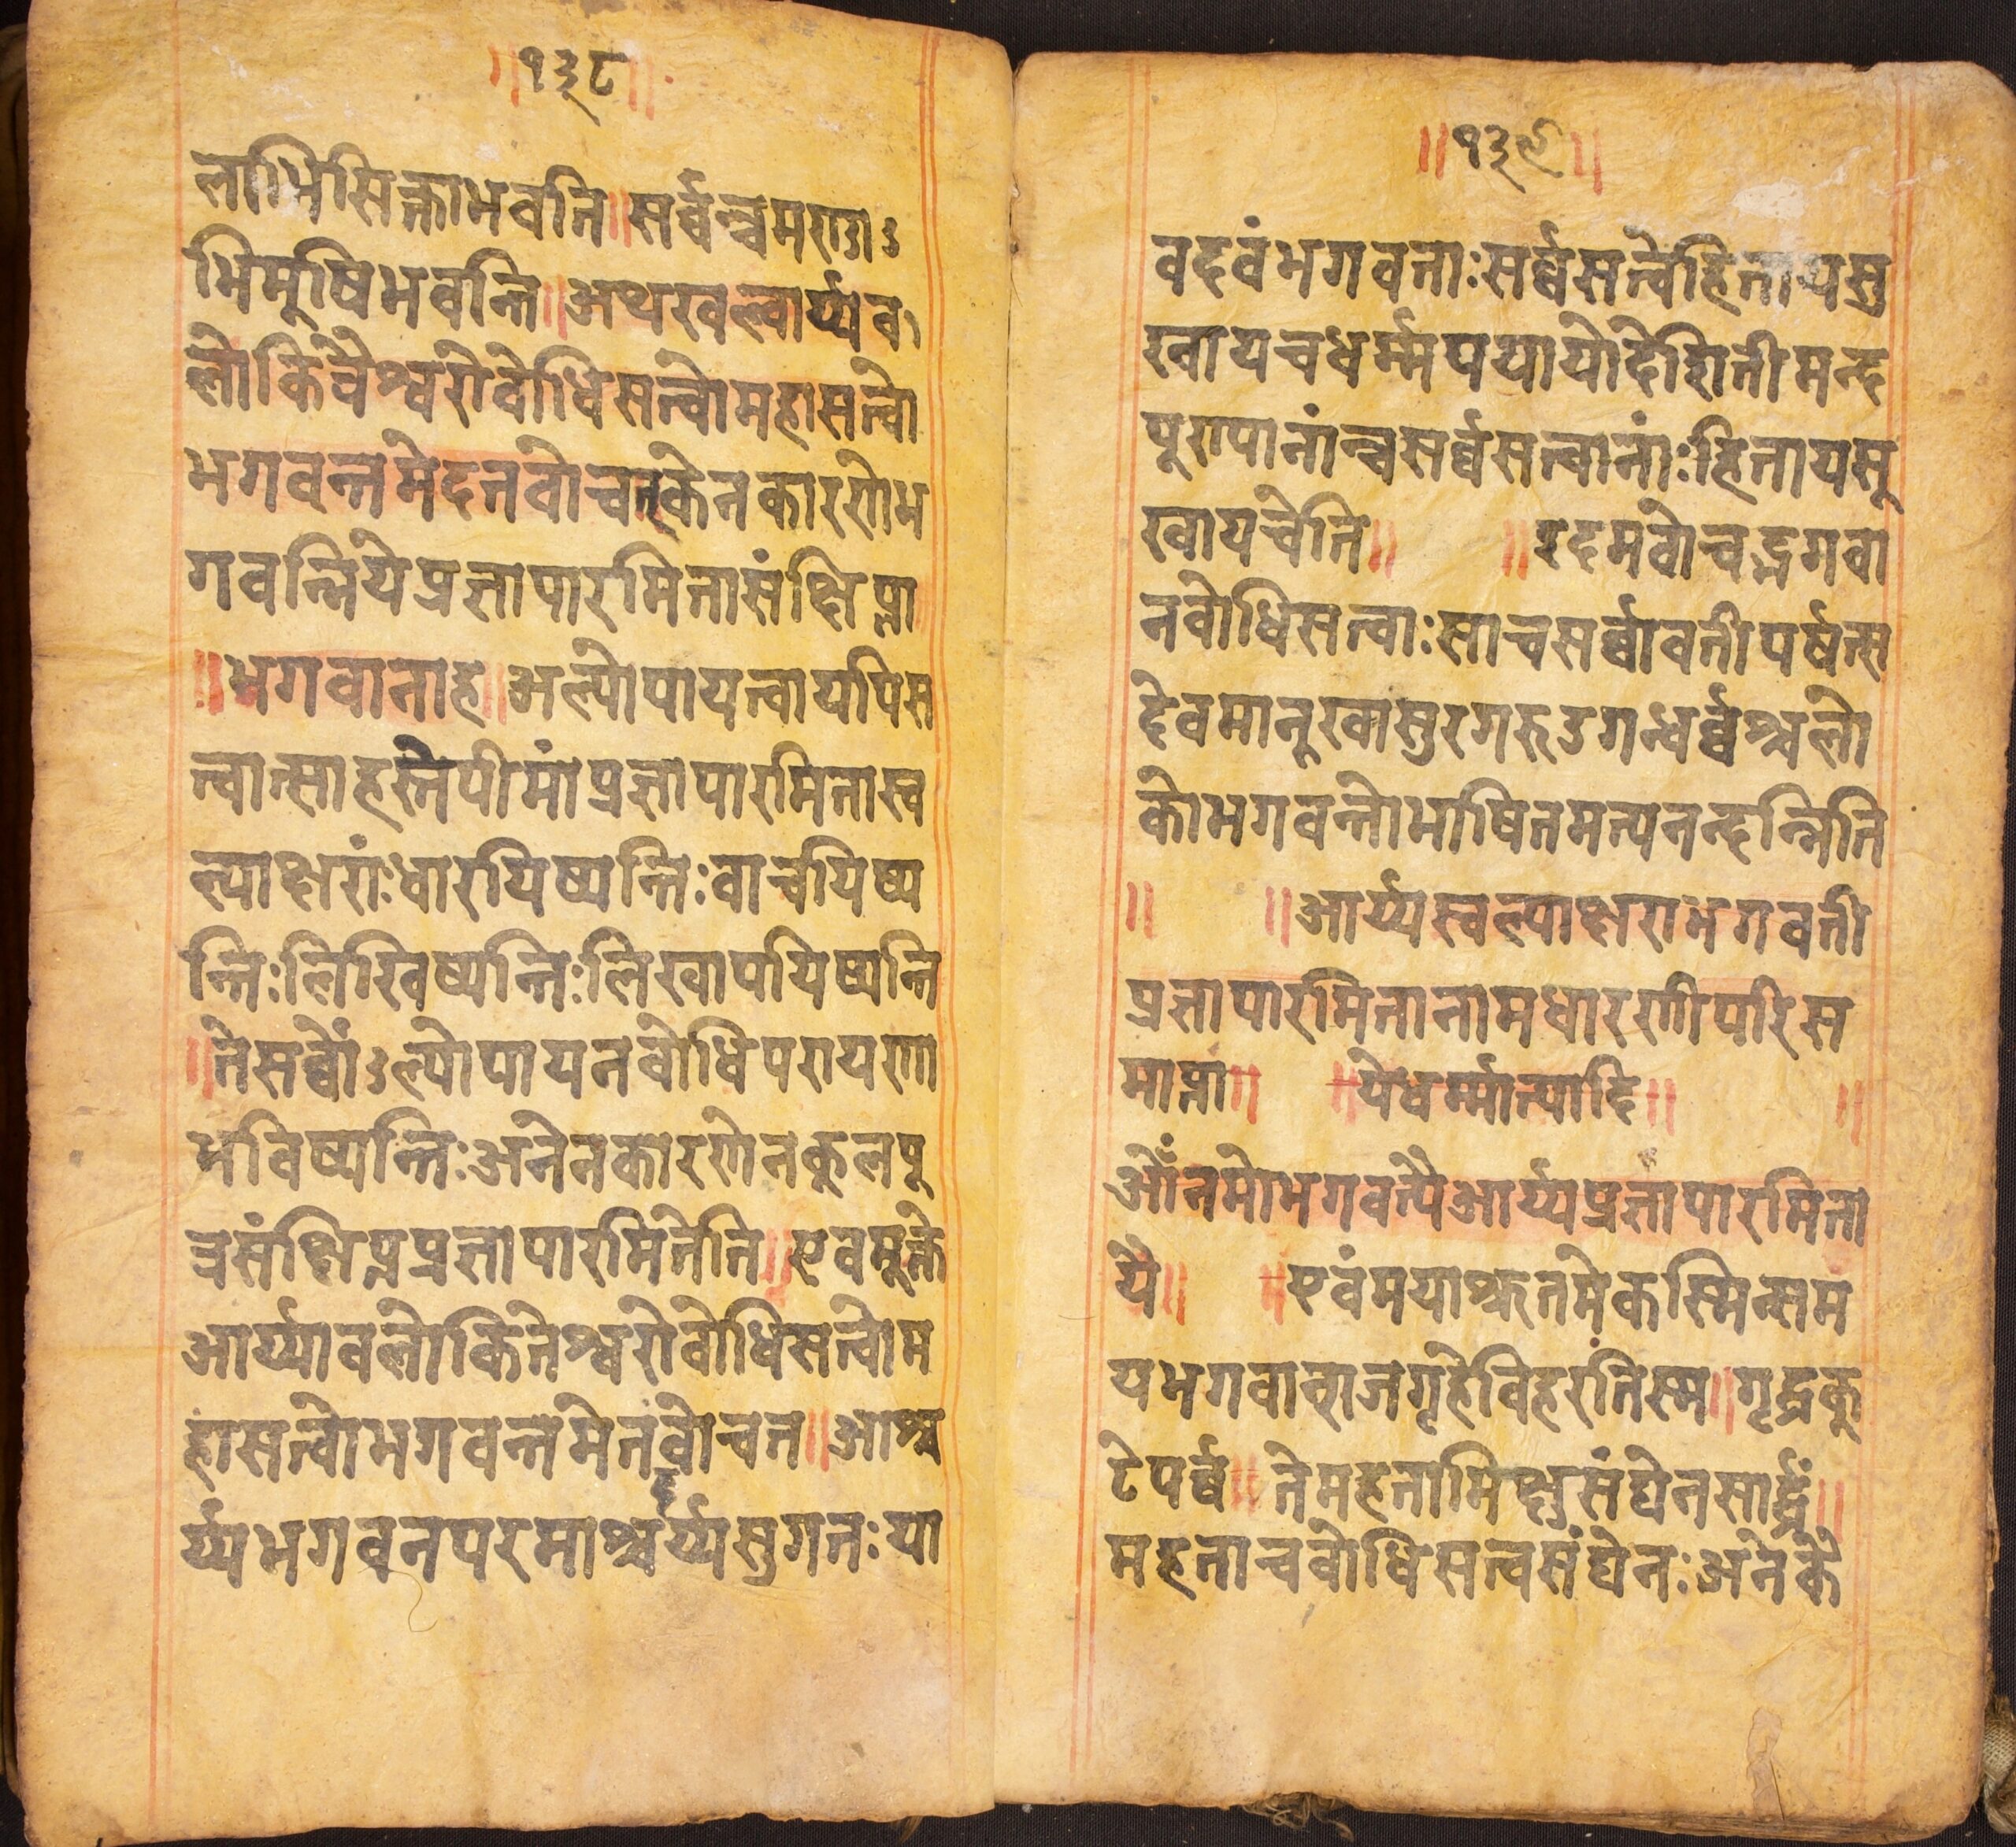 ॥१३८॥
लाभिसिक्ताभवति॥सर्व्वञ्चमराडाऽ
भिमुषिभवन्ति॥अथखल्वार्य्याव
लोकिवैश्वरोवोधिसत्त्वोमहासत्त्वो
भगवन्तमेदतवोचत्केनकारणेभ
गवन्नियेप्रज्ञापारमितासंक्षिप्ता
॥भगवानाह॥अल्पोपायत्वायपिस
त्वान्साहस्नेपीमांप्रज्ञापारमितास्व
ल्पाक्षरांःधारयिष्यन्तिःवाचयिष्य
न्तिःलिखिष्यन्तिःलिखापयिष्यन्ति
॥तेसर्व्वेंऽल्पोपायनवोधिपरायणा
भविष्यन्तिःअनेनकारणेनकुलपू
त्रसंक्षिप्तप्रज्ञापारमितेति॥एवमूक्ते
आर्य्यावलोकितेश्वरोवोधिसत्त्वोम
हासत्त्वोभगवन्तमेतंवोचत॥आश्च
र्य्यभगवन्परमाश्चर्य्यसुगतःया
॥१३९॥
वदवंभगवताःसर्व्वसत्वेहितायसु
खायचधर्म्मपयायोदेशितीमन्द
पूरापानांन्चसर्व्वसत्वानांःहितायसू
खायचेति॥ ॥इदमवोचद्भगवा
नवोधिसत्वाःसाचसर्व्वावतीपर्षत्स
देवमानूखासुरगरुडगन्धर्व्वश्चलो
कोभगवन्तोभाषितमत्यनन्दन्निति
॥ ॥आर्य्यस्वल्पाक्षराभगवती
प्रज्ञापारमितानामधारणीपरिस
माप्ता॥ ॥येधर्म्मात्यादि॥ ॥
ओँनमोभगवत्यैआर्य्यप्रज्ञापारमिता
यै॥ ॥एवंमयाश्रुतमेकस्मिन्सम
यभगवान्राजगृहेविहरंतिस्म॥गृद्ध्रकू
टेपर्व्व॥तेमहताभिक्षुसंघेनसार्द्धं॥
महताचवोधिसत्वसंघेनःअनेकै